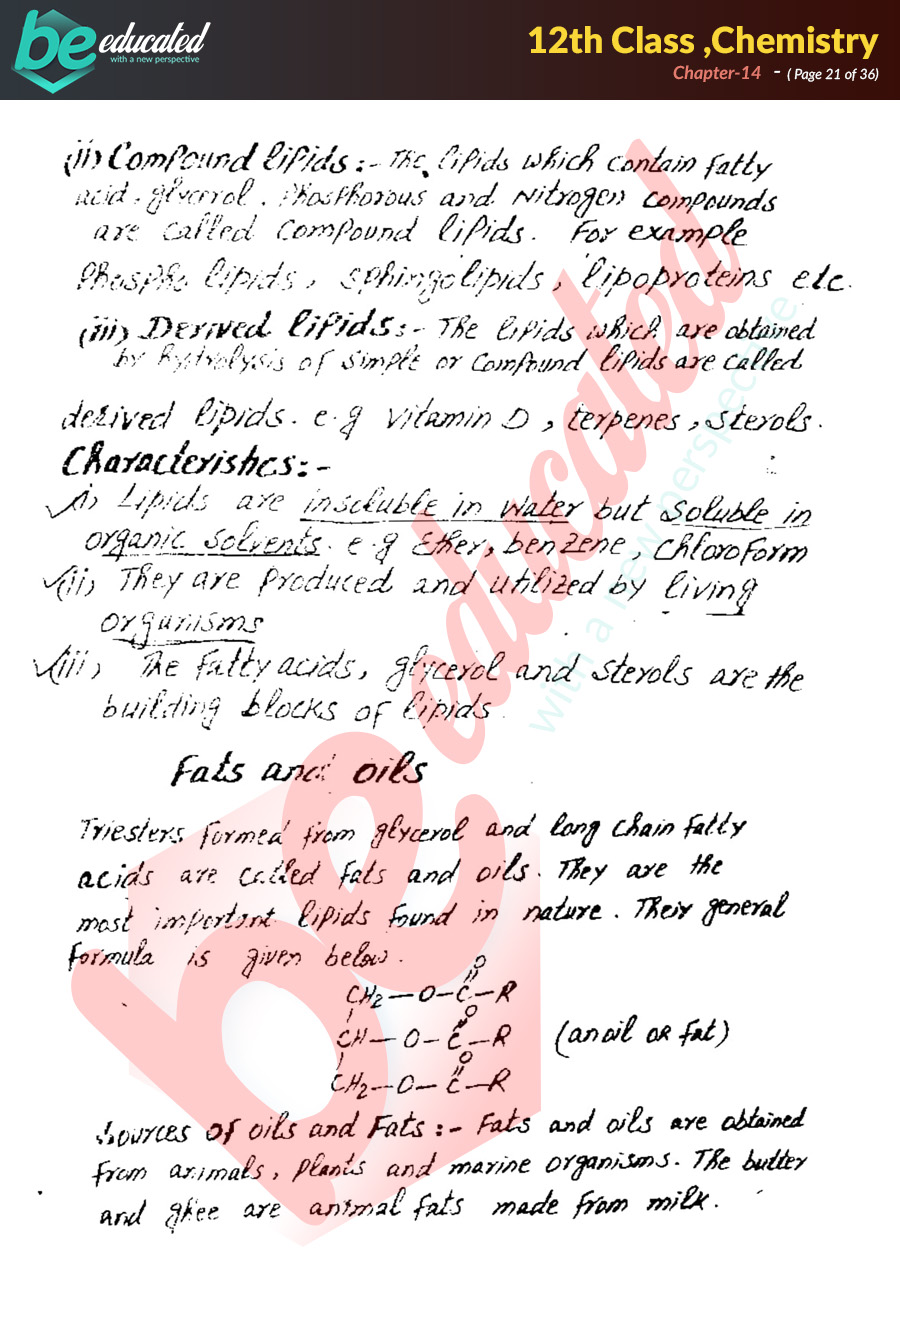 be educated
with a new perspective
12th Class ,Chemistry
Chapter-14 - ( Page 21 of 36)
(ii) Compound lipids :- The lipids which contain fatty
acid, glycerol. Phosphorous and Nitrogen compounds
are called compound lipids. For example
Phospho lipids, sphingolipids, lipoproteins etc.
(iii) Derived lipids :- The lipids which are obtained
by hydrolysis of simple or compound lipids are called
derived lipids. e.g Vitamin D, terpenes, sterols.
Characteristics :-
(i) Lipids are insoluble in water but soluble in
organic solvents. e.g Ether, benzene, chloroform
(ii) They are produced and utilized by living
organisms
(iii) The fatty acids, glycerol and sterols are the
building blocks of lipids.
Fats and oils
Triesters formed from glycerol and long chain fatty
acids are called fats and oils. They are the
most important lipids found in nature. Their general
formula is given below.
O
CH₂—O—C—R
O
CH—O—C—R (an oil or fat)
O
CH₂—O—C—R
Sources of oils and Fats :- Fats and oils are obtained
from animals, plants and marine organisms. The butter
and ghee are animal fats made from milk.
be educated
with a new perspective